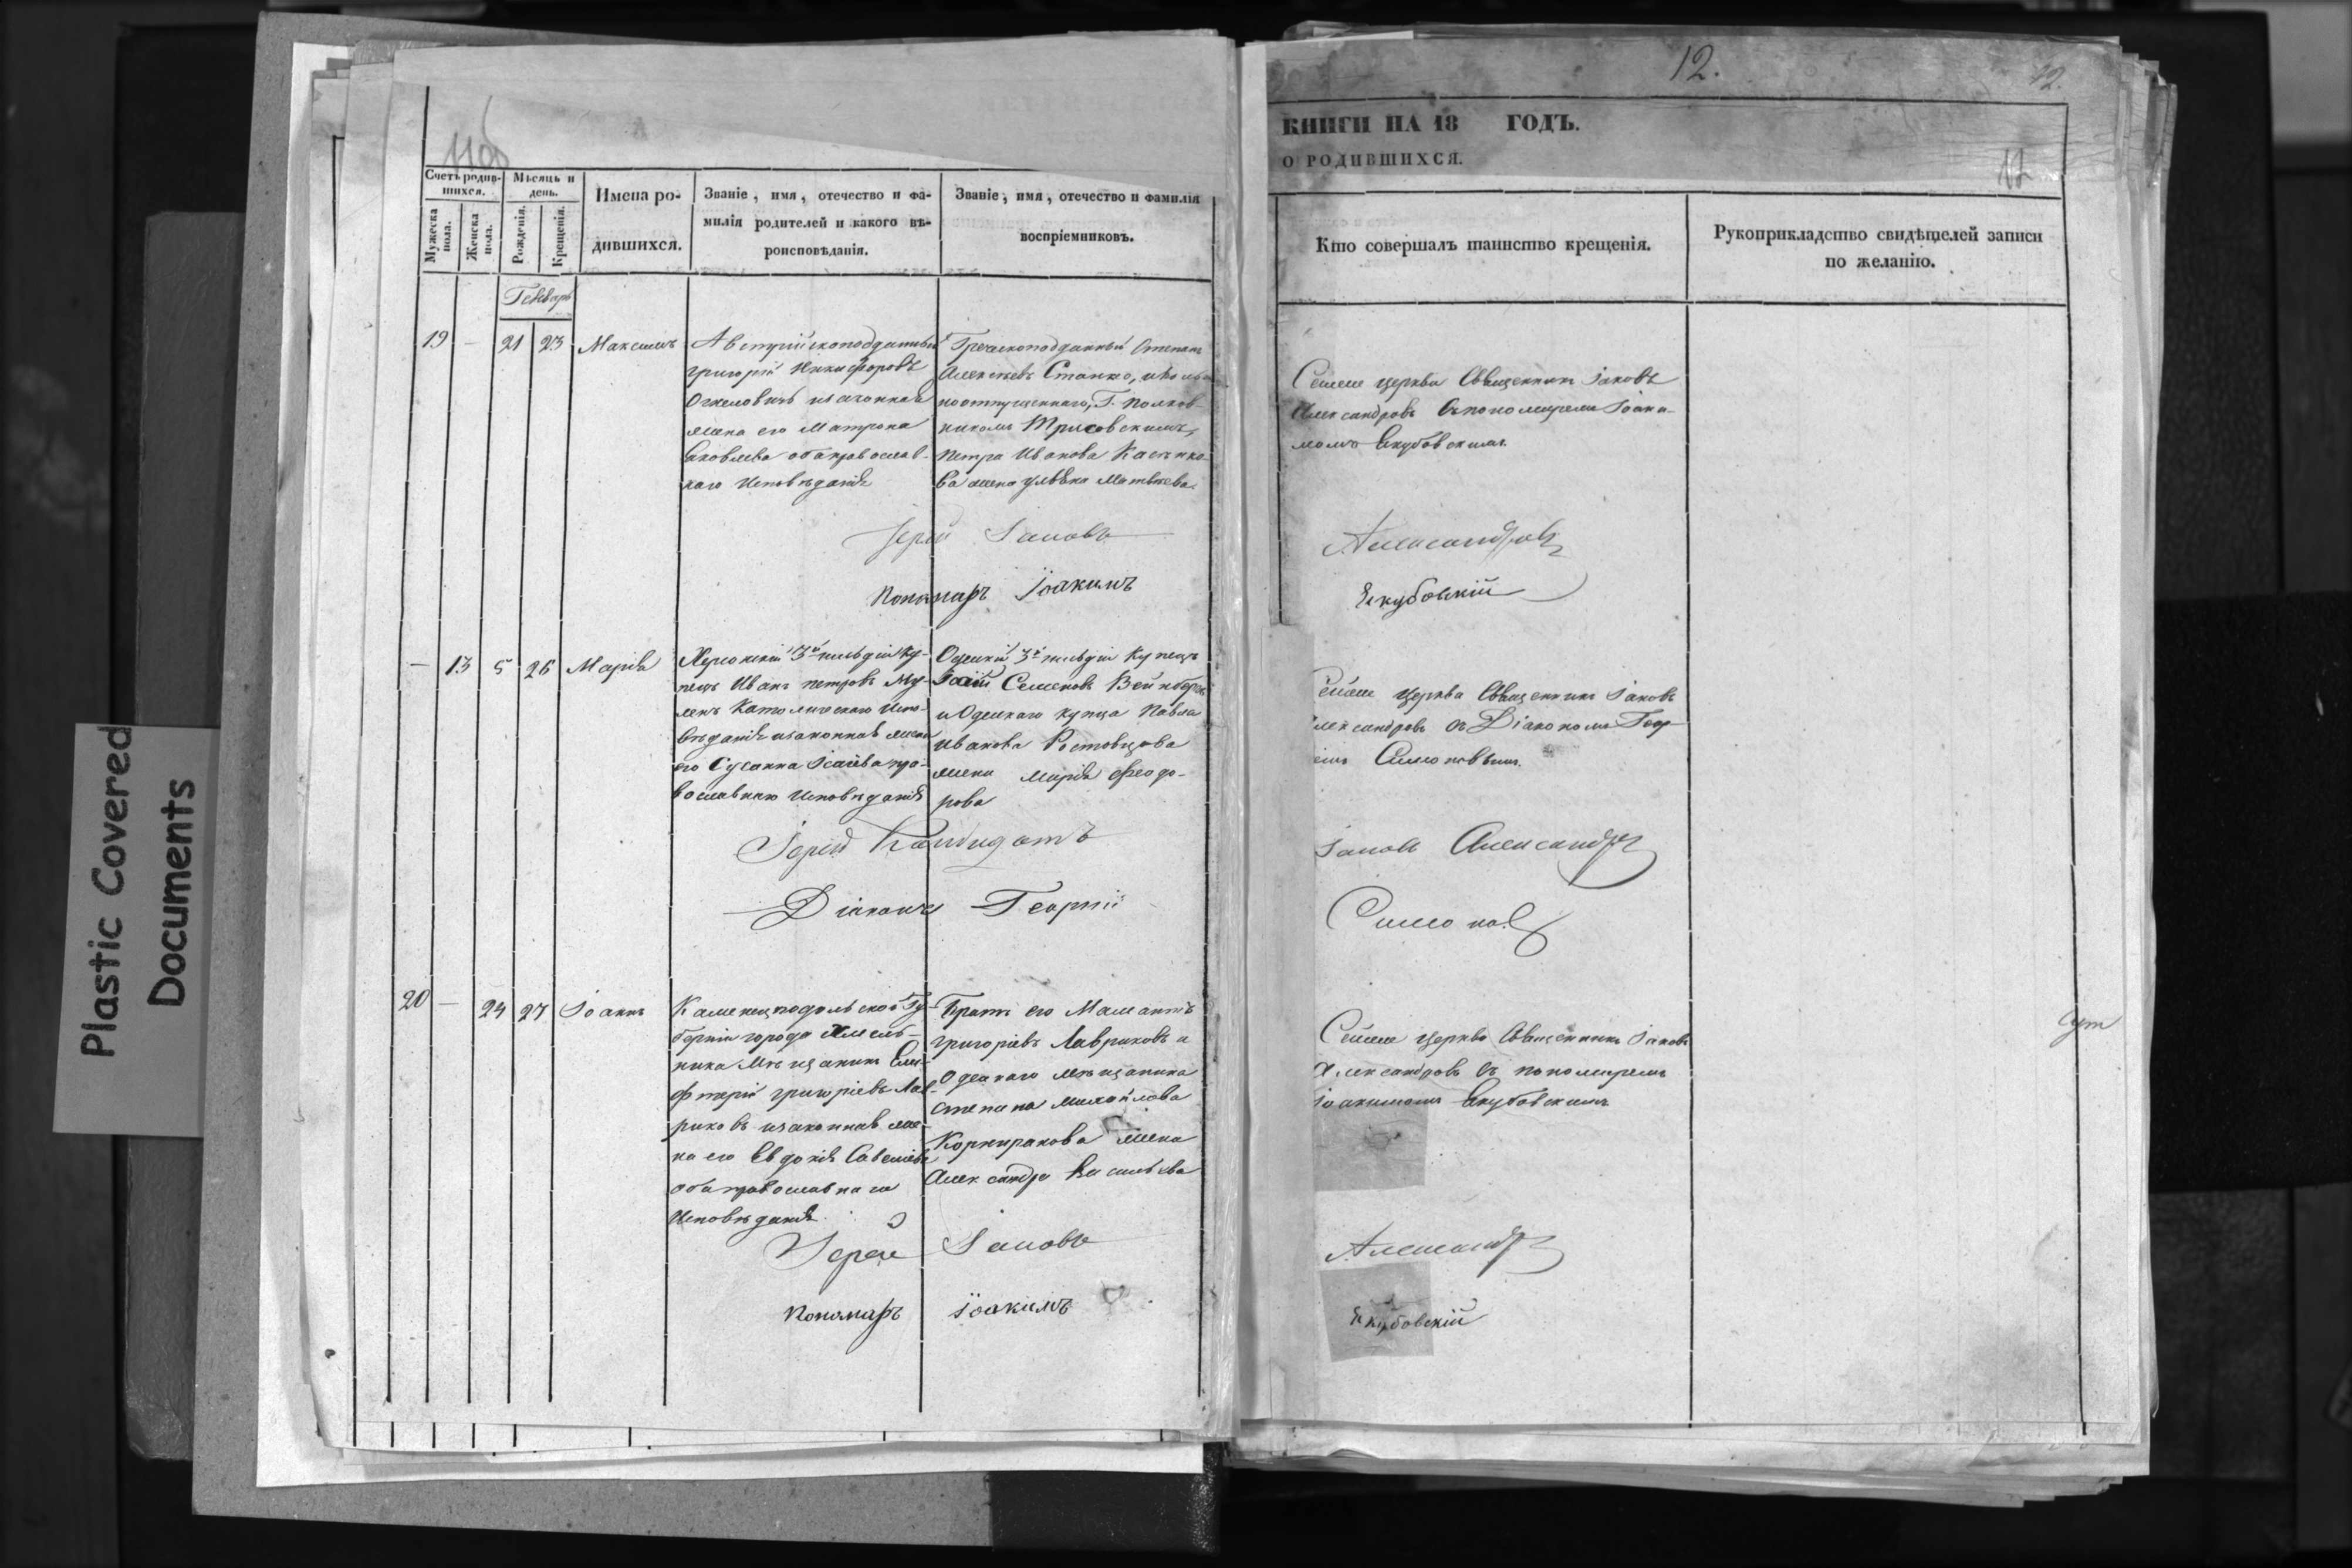 Plastic Covered
Documents
11об
Счетъ родив-
шихся.
Мѣсяцъ и
день.
Мужеска
пола.
Женска
пола.
Рожденія.
Крещенія.
Имена ро-
дившихся.
Званіе, имя, отечество и фа-
милія родителей и какого вѣ-
роисповѣданія.
Званіе, имя, отечество и фамилія
воспріемниковъ.
Генварь
19 — 21 23 Максимъ
Австрійскоподданный
Григорій Никифоровъ
изаконная
жена его Матрона
Яковлева оба православ-
наго Исповѣданія
Греческоподданный Степанъ
Алексѣевъ Станко,
Г. Полков-
никомъ
Петра Иванова
жена Матвѣева
Іерей Іаковъ
Пономарь Іоакимъ
— 13 5 26 Марія
Херсонскій 3й гильдіи Ку-
пецъ Иванъ Петровъ
Католическаго Испо-
вѣданія изаконная жена
его Сусанна Исаіева пра-
вославнаго Исповѣданія
Одескій 3й гильдіи Купецъ
Семеновъ Вейнбергъ
и Одескаго купца Павла
Иванова Ростовцова
жена Марія Феодо-
рова
Іерей
Діаконъ Георгій
20 — 24 27 Іоаннъ
Каменецподольской Гу-
берніи города Хмель-
ника Мѣщанинъ Еле-
фтерій Григоріевъ Лав-
риковъ изаконная же-
на его Евдокія Савеліева
оба православнаго
Исповѣданія
Братъ его Мамантъ
Григоріевъ Лавриковъ и
Одескаго мѣщанина
Степана Михайлова
жена
Александра Васильева
Іерей Іаковъ
Пономарь Іоакимъ
12.
12.
КНИГИ НА 18 ГОДЪ.
О РОДИВШИХСЯ.
12
Кто совершалъ таинство крещенія.
Рукоприкладство свидѣтелей записи
по желанію.
Сеййе церкви Священникъ Іаковъ
Александровъ съ пономаремъ Іоаки-
момъ Екубовскимъ.
Александровъ
Екубовскій
церкви Священникъ Іаковъ
лександровъ съ Діакономъ Геор
Симоновымъ.
Іаковъ Александровъ
Симоновъ
церкви Священникъ Іаковъ
Александровъ съ пономаремъ
Іоакимомъ Екубовскимъ
Александровъ
Екубовскій